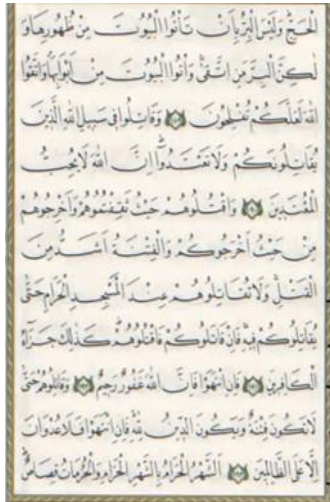 الْحَجِّ وَلَيْسَ الْبِرُّ بِاَنْ تَاْتُوا الْبُيُوتَ مِنْ ظُهُورِهَا وَ
لٰكِنَّ الْبِرَّ مَنِ اتَّقٰى وَاْتُوا الْبُيُوتَ مِنْ اَبْوَابِهَا وَاتَّقُوا
اللهَ لَعَلَّكُمْ تُفْلِحُونَ وَقَاتِلُوا فِى سَبِيلِ اللهِ الَّذِينَ
يُقَاتِلُونَكُمْ وَلَا تَعْتَدُوا اِنَّ اللهَ لَا يُحِبُّ
الْمُعْتَدِينَ وَاقْتُلُوهُمْ حَيْثُ ثَقِفْتُمُوهُمْ وَاَخْرِجُوهُمْ
مِنْ حَيْثُ اَخْرَجُوكُمْ وَالْفِتْنَةُ اَشَدُّ مِنَ
الْقَتْلِ وَلَا تُقَاتِلُوهُمْ عِنْدَ الْمَسْجِدِ الْحَرَامِ حَتّٰى
يُقَاتِلُوكُمْ فِيهِ فَاِنْ قَاتَلُوكُمْ فَاقْتُلُوهُمْ كَذٰلِكَ جَزَاءُ
الْكَافِرِينَ فَاِنِ انْتَهَوْا فَاِنَّ اللهَ غَفُورٌ رَحِيمٌ وَقَاتِلُوهُمْ حَتّٰى
لَا تَكُونَ فِتْنَةٌ وَيَكُونَ الدِّينُ لِلّٰهِ فَاِنِ انْتَهَوْا فَلَا عُدْوَانَ
اِلَّا عَلَى الظَّالِمِينَ اَلشَّهْرُ الْحَرَامُ بِالشَّهْرِ الْحَرَامِ وَالْحُرُمَاتُ قِصَاصٌ